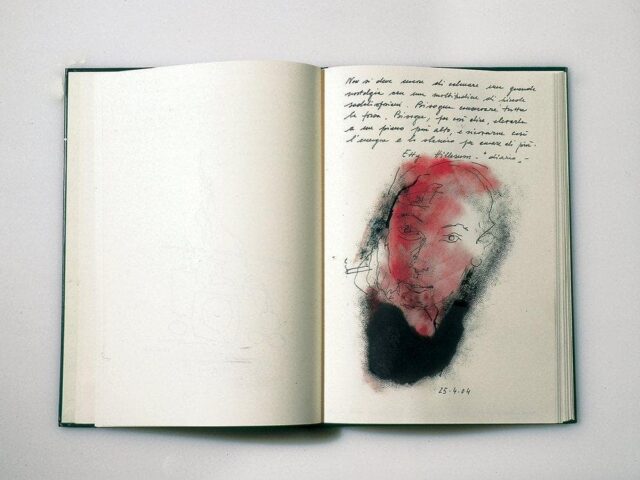 Non si deve cercare di calmare una grande
nostalgia con una moltiplicazione di piccole
soddisfazioni. Bisogna conservarne tutta
la forza. Bisogna, per così dire, elevarla
a un piano più alto, e ricavarne così
l'energia e lo slancio per amare di più.
Etty Hillesum. "diario"-
25-4-04